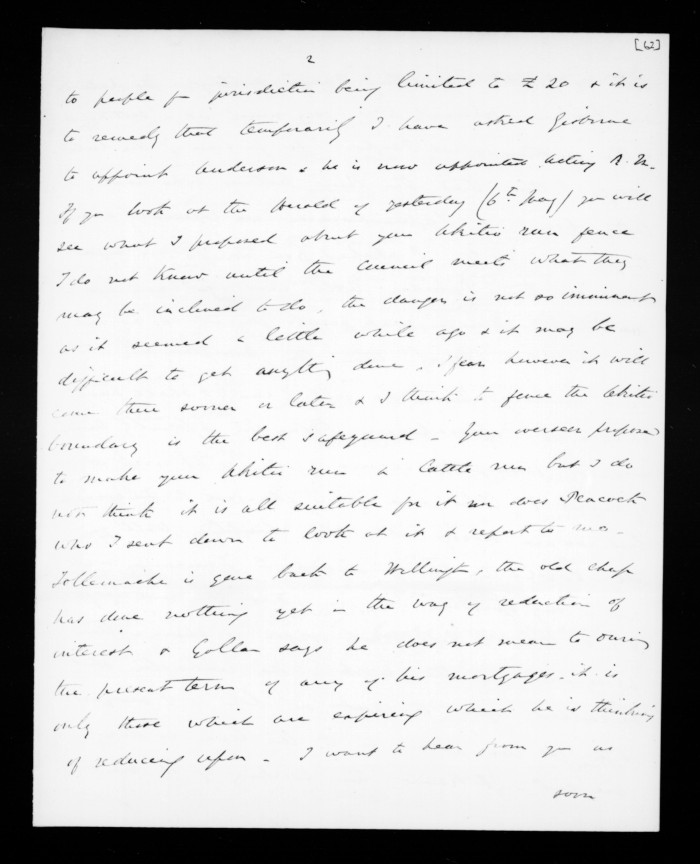 [62]
2
to people for jurisdiction being limited to £20 & it is
to remedy that temporarily I have asked Gisborne
to appoint Anderson & he is now appointed acting R. M.
If you look at the Herald of yesterday (6th May) you will
see what I proposed about your Akitio run fence
I do not know until the Council meets what they
may be inclined to do, the danger is not so imminent
as it seemed a little while ago & it may be
difficult to get anything done, I fear however it will
come there sooner or later & I think to fence the Akitio
boundary is the best safeguard - Your overseer proposed
to make your Akitio run a Cattle run but I do
not think it is all suitable for it nor does Peacock
who I sent down to look at it & report to me -
Tollemache is gone back to Wellington, the old chap
has done nothing yet in the way of reduction of
interest & Gollan says he does not mean to during
the present term of any of his mortgages - it is
only those which are expiring which he is thinking
of reducing upon - I want to hear from you as
soon